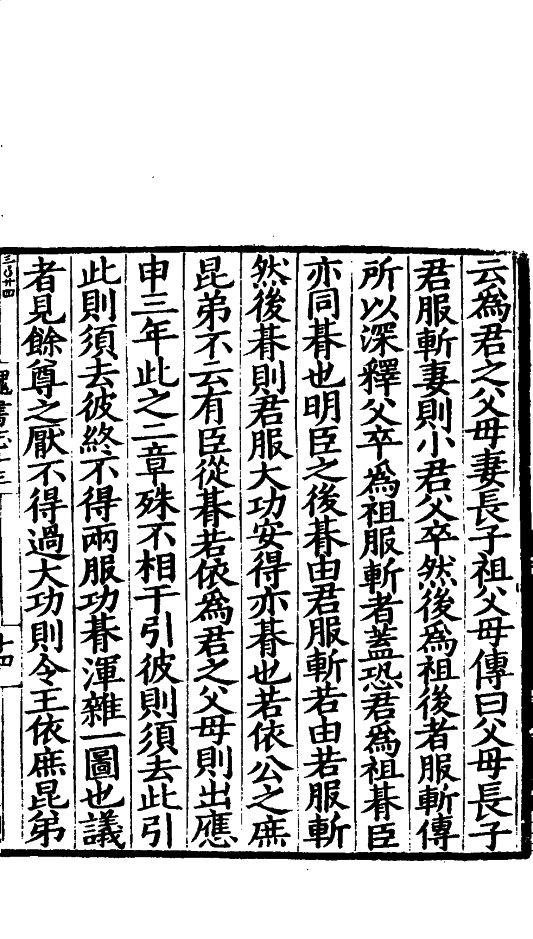 云爲君之父母妻長子祖父母傳曰父母長子
君服斬妻則小君父卒然後爲祖後者服斬傳
所以深釋父卒爲祖服斬者蓋恐君爲祖朞臣
亦同朞也明臣之後朞由君服斬若由若服斬
然後朞則君服大功安得亦朞也若依公之庶
昆弟不云有臣從朞若依爲君之父母則出應
申三年此之二章殊不相干引彼則須去此引
此則須去彼終不得兩服功朞渾雜一圖也議
者見餘尊之厭不得過大功則令王依庶昆弟
魏書志十三
十四